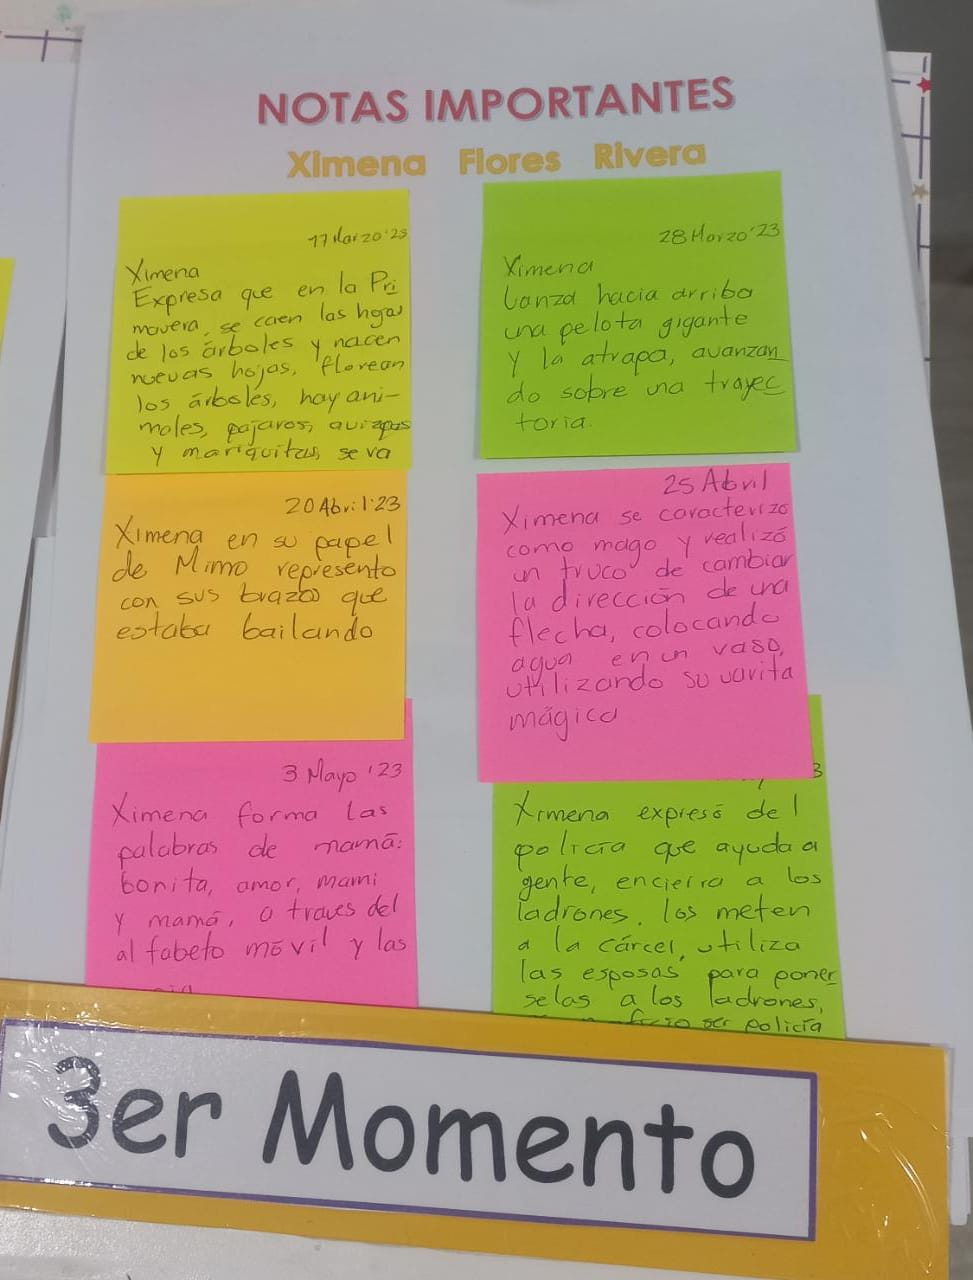 NOTAS IMPORTANTES
Ximena Flores Rivera
17 Marzo '23
Ximena
Expresa que en la Pri
mavera, se caen las hojas
de los árboles y nacen
nuevas hojas, florean
los árboles, hay ani-
males, pajaros, avispas
y mariquitas, se va
28 Marzo '23
Ximena
Lanza hacia arriba
una pelota gigante
y la atrapa, avanzan
do sobre una trayec
toria.
20 Abril '23
Ximena en su papel
de Mimo represento
con sus brazos que
estaba bailando
25 Abril
Ximena se caracterizó
como mago y realizó
un truco de cambiar
la dirección de una
flecha, colocando
agua en un vaso,
utilizando su varita
mágica
3 Mayo '23
Ximena forma las
palabras de mamá:
bonita, amor, mami
y mamá, a traves del
alfabeto móvil y las
3
Ximena expresó del
policía que ayuda a
gente, encierra a los
ladrones. los meten
a la cárcel, utiliza
las esposas para poner
selas a los ladrones,
ser policía
3er Momento